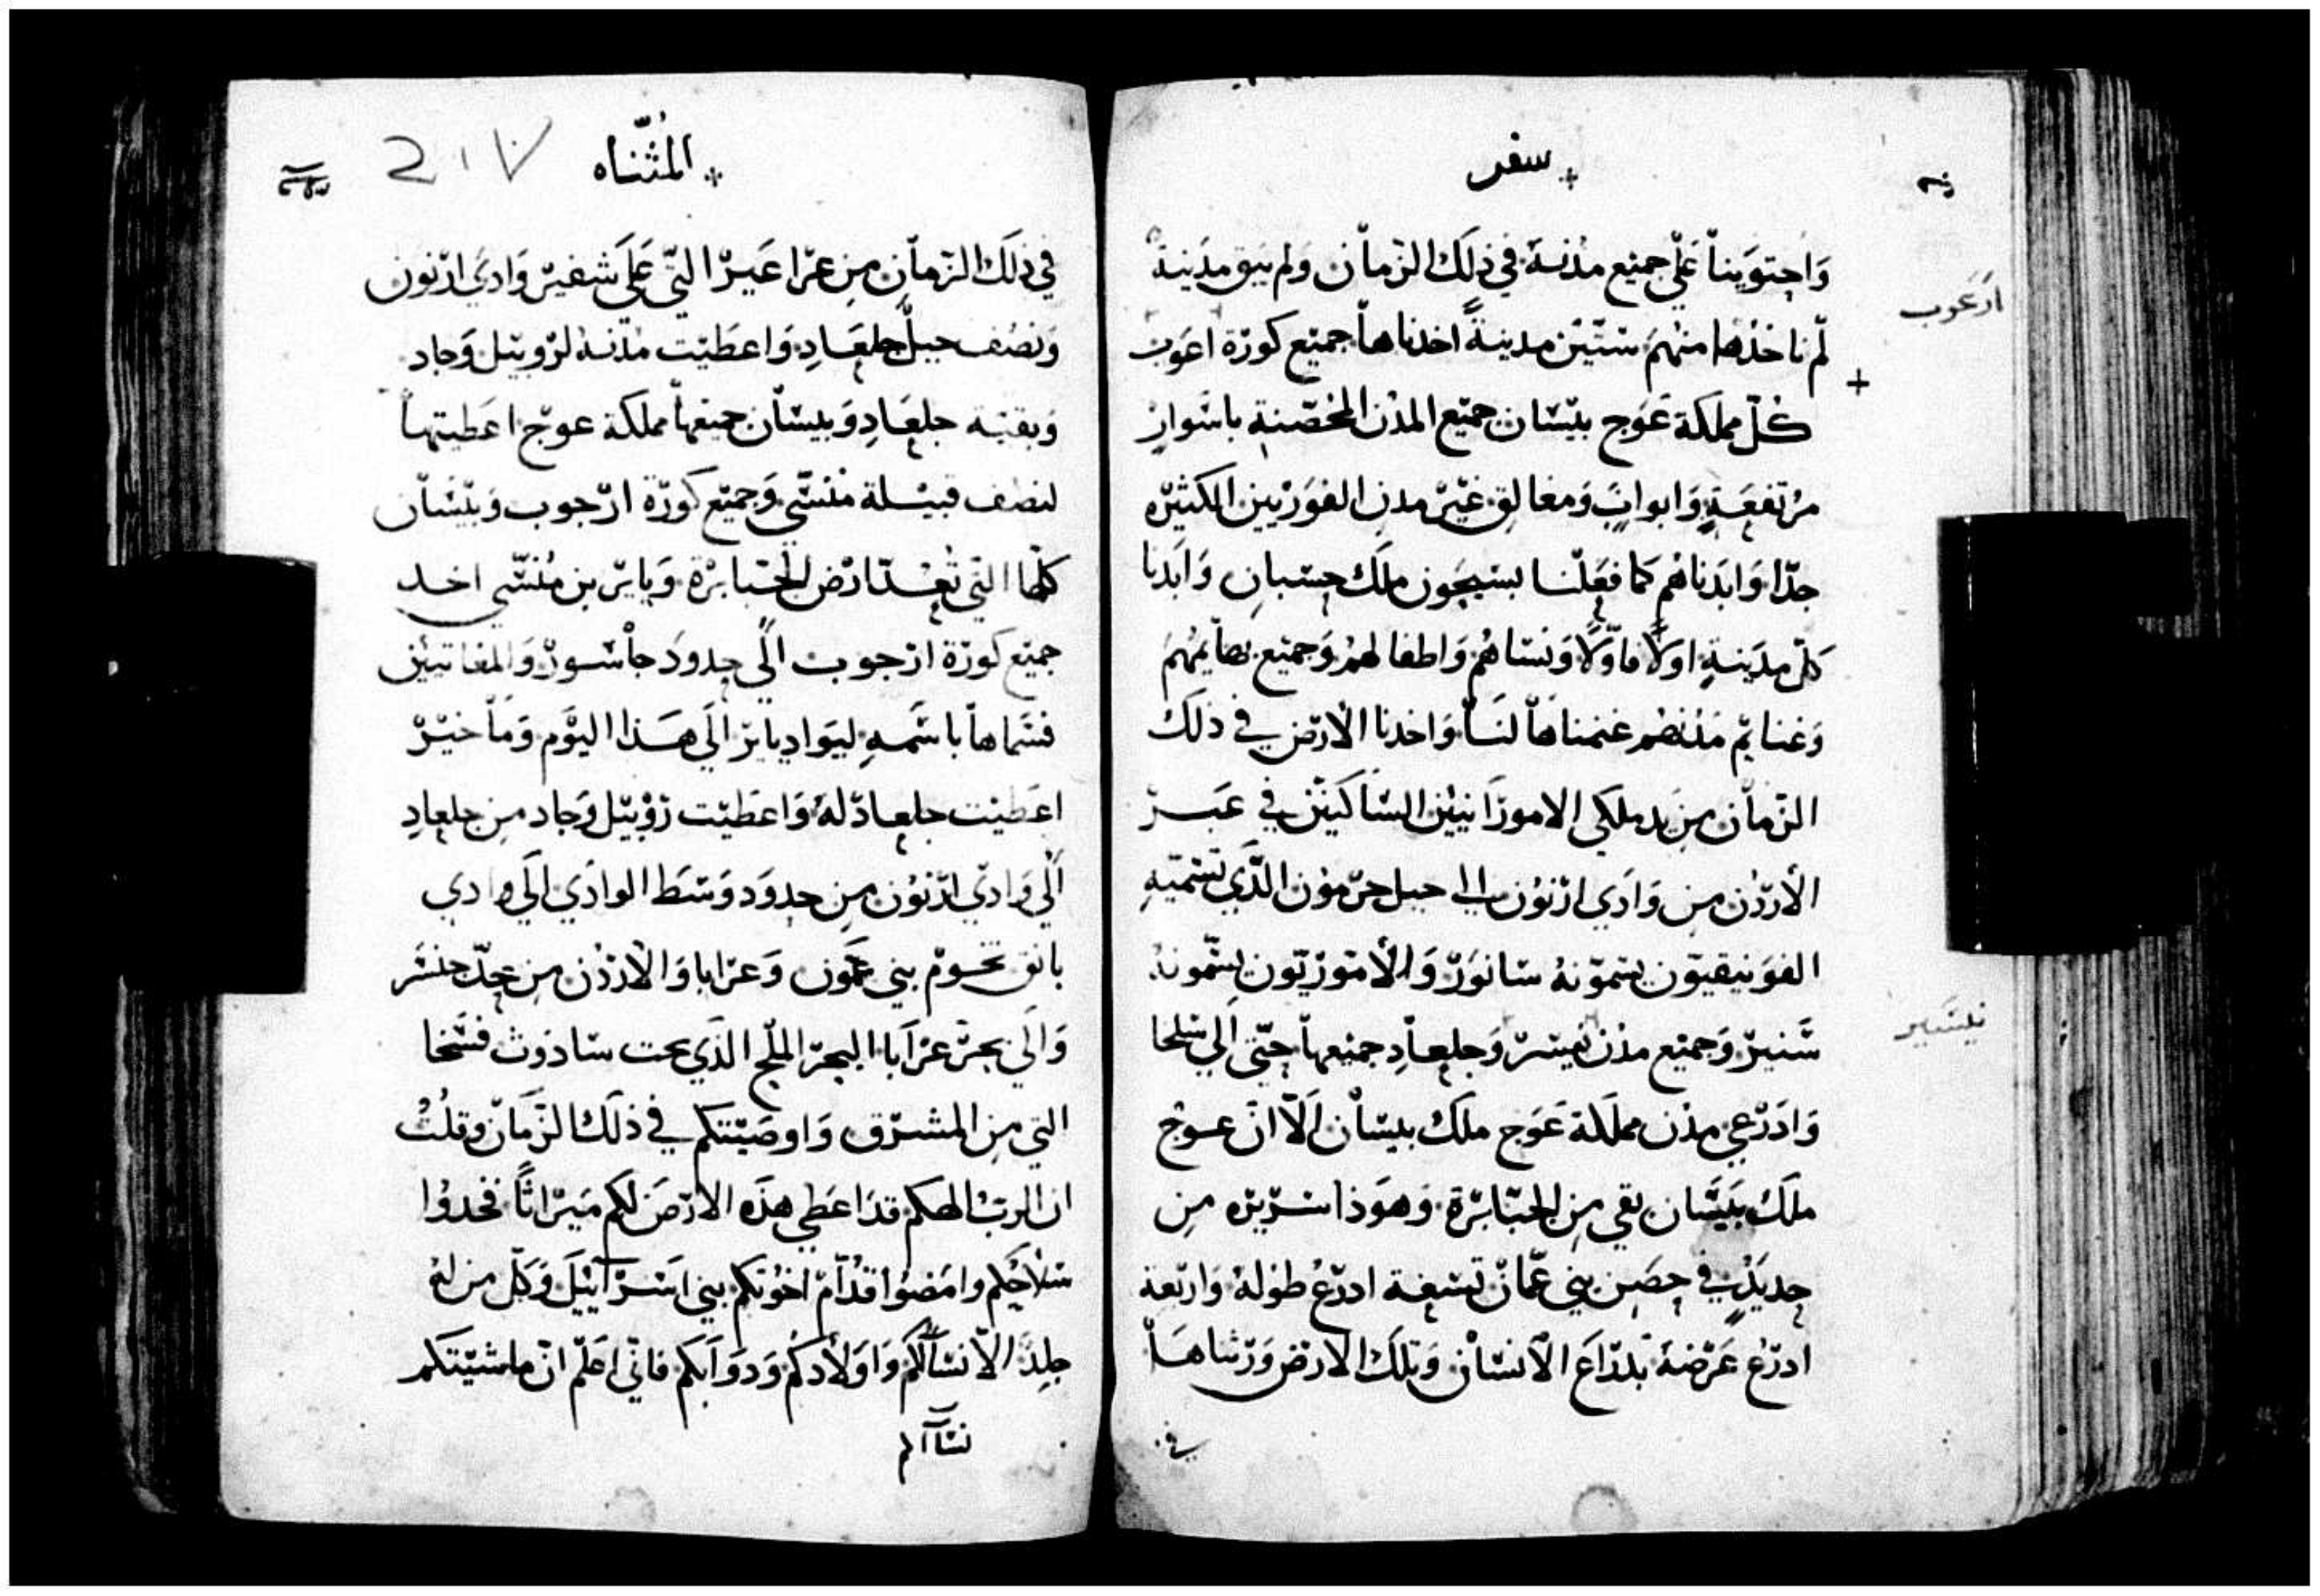 سفر
وَاحتوَينا عَلي جميع مُدنهَ في ذلكَ الزمان وَلم يَبق مدَينة
ارَعوب
لم ناخُذها منهمَ ستّين مدينةً اخدناها جميع كورَة اعوب
كُلّ مملكة عَوج بيسَان جميع المدن المحُصّنةِ باسَوارٍ
مرُتفِعَةٍ وَابوابٍ وَمغالقِ غير مدنِ الفوَرَيين الكثيرَه
جدّا وَابَدناهُم كما فعَلنا بسَيحَون ملَك حسَبانِ وَابَدنا
كلّ مدَينةٍ اولاً فاوّلاً وَنسَاهُم وَاطفالهمُ وَجميع بهايمُهم
وَغنايم مدُنهُم غنمناهَا لنَا وَاخدنا الارَض في ذلكَ
الزمان مِن يَد ملكي الاموُرَانيين السَاكنين في عَبر
الاردُن مِن وَادَي ارنوُن الي جبل حرَموُن الذَي تسَميّهِ
الفوَنيقيون يسَموّنهُ سَانوَرَ وَالاموَرَيون يسَمّونهُ
شَنيرَ وَجميع مدُن نميسَر وَجلعاَدِ جميعها حتّي الي سَلخا
نيسَير
وَادَرَعي مدُن مملَكة عَوج ملَكَ بيسَان اَلاّ انّ عوَج
ملَكَ بَيسَان بقي مِن الجبَابرَة وَهوَذا سَرَيرَه مِن
حديَدٍ في حصَن بني عمّان تسَعة ادرَعُ طوُلهُ وَارَبعة
ادرَعُ عَرَضهُ بدرَاعَ الاَنسَان وَتلَكَ الارَض وَرَثناهَا
في
المُثنّاه
217
في ذلكَ الزمان مِن عرَاعيَر التّي عَلَي شفيرَ وَادَي ارَنون
وَنصُف جبل جلعَادِ وَاعطَيت مدُنهُ لرَوبيل وَجاد
وَبقيّة جلعَادِ وَبيسَان جميعها مملكة عوج اعَطيتهاَ
لنصُف قبيَلة منَسّي وَجميع كورَة ارَجوب وَبيَسَان
كلهَا التّي تُعدّ ارَض الجبابرَة وَيايرَ بن منُسّي اخد
جميع كورَة ارَجوب الَي حدودَ جاسَورَ وَالمغاتيين
فسَماها باسَمهِ ليوَادِ يايرَ الَي هَذا اليَوم وَماخيرَ
اعَطيت جلعادَ لهُ وَاعَطيت رَوُبيل وَجاد مِن جلعادِ
اَلي وَادي ارَنوُن مِن حدودَ وسَط الوادَي الَي وادي
يانوَق تخوَم بني عمّون وَعرَابا وَالارَدُن مِن حِدّ جنسَر
وَالي بحرَ عرَابا البحر الملح الذَي تحت سَادوَث فسَخا
التي مِن المشرَق وَاوصَيتكم في ذلكَ الزَمَان وقلُتُ
ان الربّ الهكم قدَ اعَطي هذَه الارَضَ لكم ميَرَاثًا فخدوُا
سَلاحكم وامَضوُا قدُاّم اخوُتكم بني اسَرَاييَلَ وَكلّ من لهُ
جلِدَ الاّ نسَآكُم وَاوَلادَكُم وَدوَابكم فاني اعَلم انّ ماشَيتكم
نسَآكم